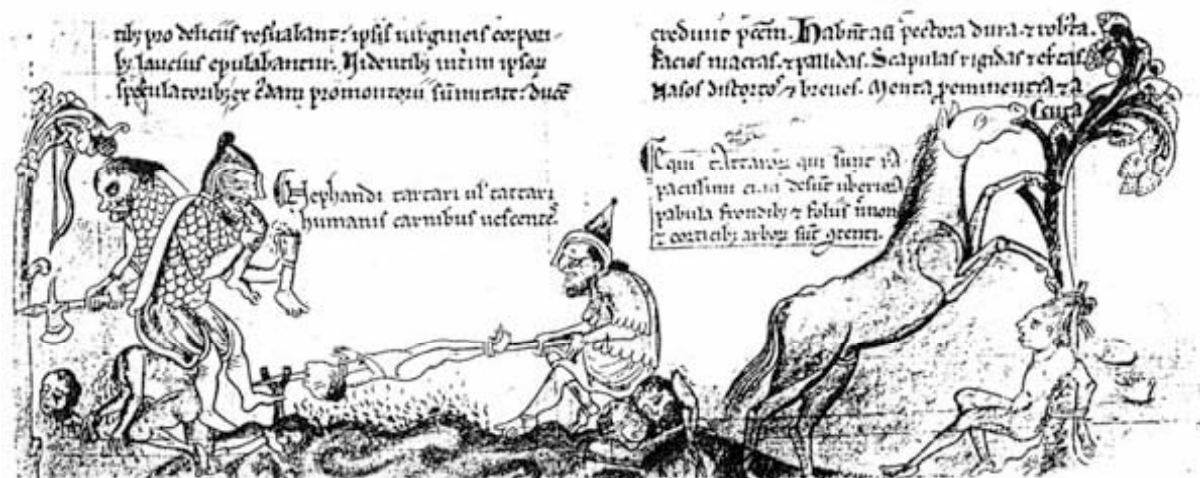 tib; pro deliciis reſuabant: ipſis uirgineis corpori-
b; laucius epulabantur. Uidentib; ipſor
ſpeculatorib; ex promontorii ſummitate: ducē
Nephandi tartari ul' tattari
humanis carnibus ueſcentes
credunt pccm. Habnt aū pectora dura ⁊ robſta.
Facies macras. ⁊ pallidas. Scapulas rigidas ⁊ erectas
Naſos diſtortos ⁊ breues. Menta peminentia ⁊ a
Equi tattaroꝝ qui ſunt ra
paciſſimi cum deſūt uberiora
pabula frondib; ⁊ foliis nnon
⁊ corticib; arboꝝ ſūt ꝯtenti.